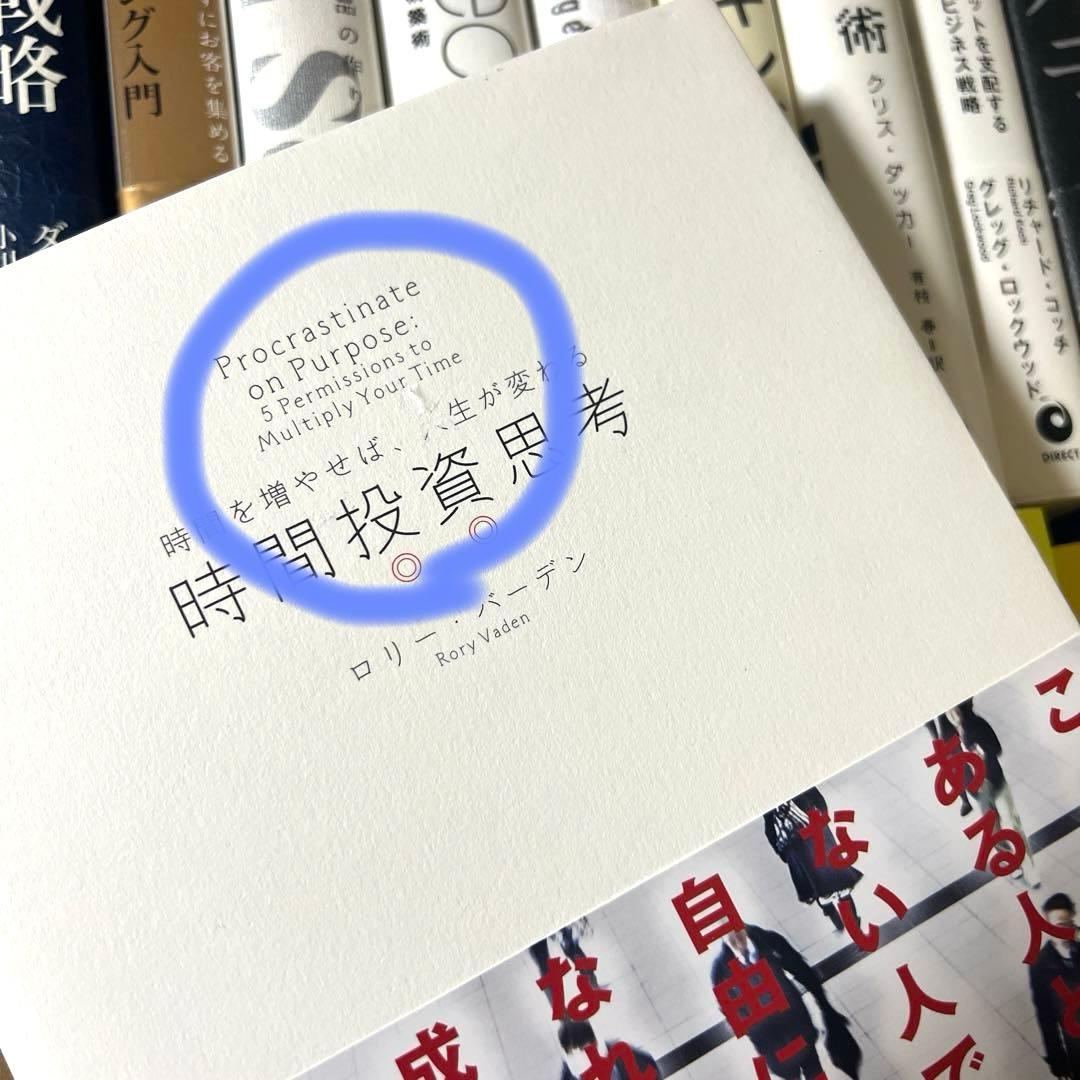 戦略
グ入門
ずにお客を集める
器の作り
築術
術
クリス・ダッカー
有村 春=訳
ットを支配する
ビジネス戦略
リチャード・コッチ
Richard Koch
グレッグ・ロックウッド
Greg Lockwood
DIRECT
Procrastinate
on Purpose:
5 Permissions to
Multiply Your Time
時間を増やせば、人生が変わる
時間投資思考
ロリー・バーデン
Rory Vaden
こ
ある人と
ない人で
自由に
なれ
成